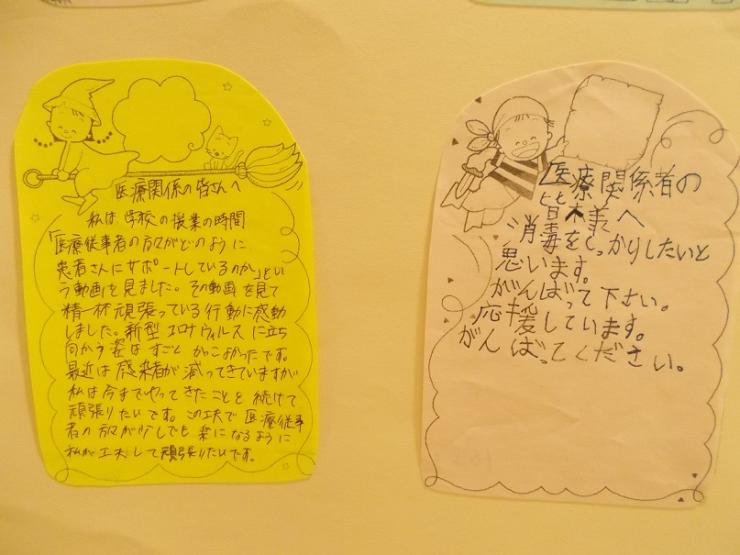 医療関係の皆さんへ
私は学校の授業の時間
「医療従事者の方々がどのように
患者さんにサポートしているのか」とい
う動画を見ました。その動画を見て
精一杯頑張っている行動に感動
しました。新型コロナウィルスに立ち
向かう姿はすごくかっこよかったです。
最近は感染者が減ってきていますが
私は今までやってきたことを続けて
頑張りたいです。この工夫で医療従事
者の方々が少しでも楽になるように
私が工夫して頑張りたいです。
医療関係者の
皆様へ
消毒をしっかりしたいと
思います。
がんばって下さい。
応援しています。
がんばってください。